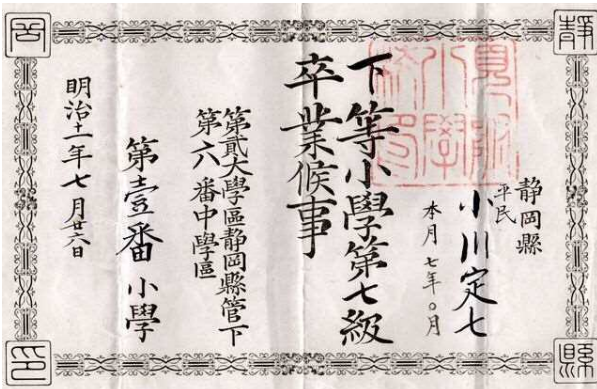 静岡縣
平民
小川定七
本月七年〇月
下等小學第七級
卒業候事
第貳大學區静岡縣管下
第六番中學區
第壹番小學
明治十一年七月廿六日
靜
岡
縣
印